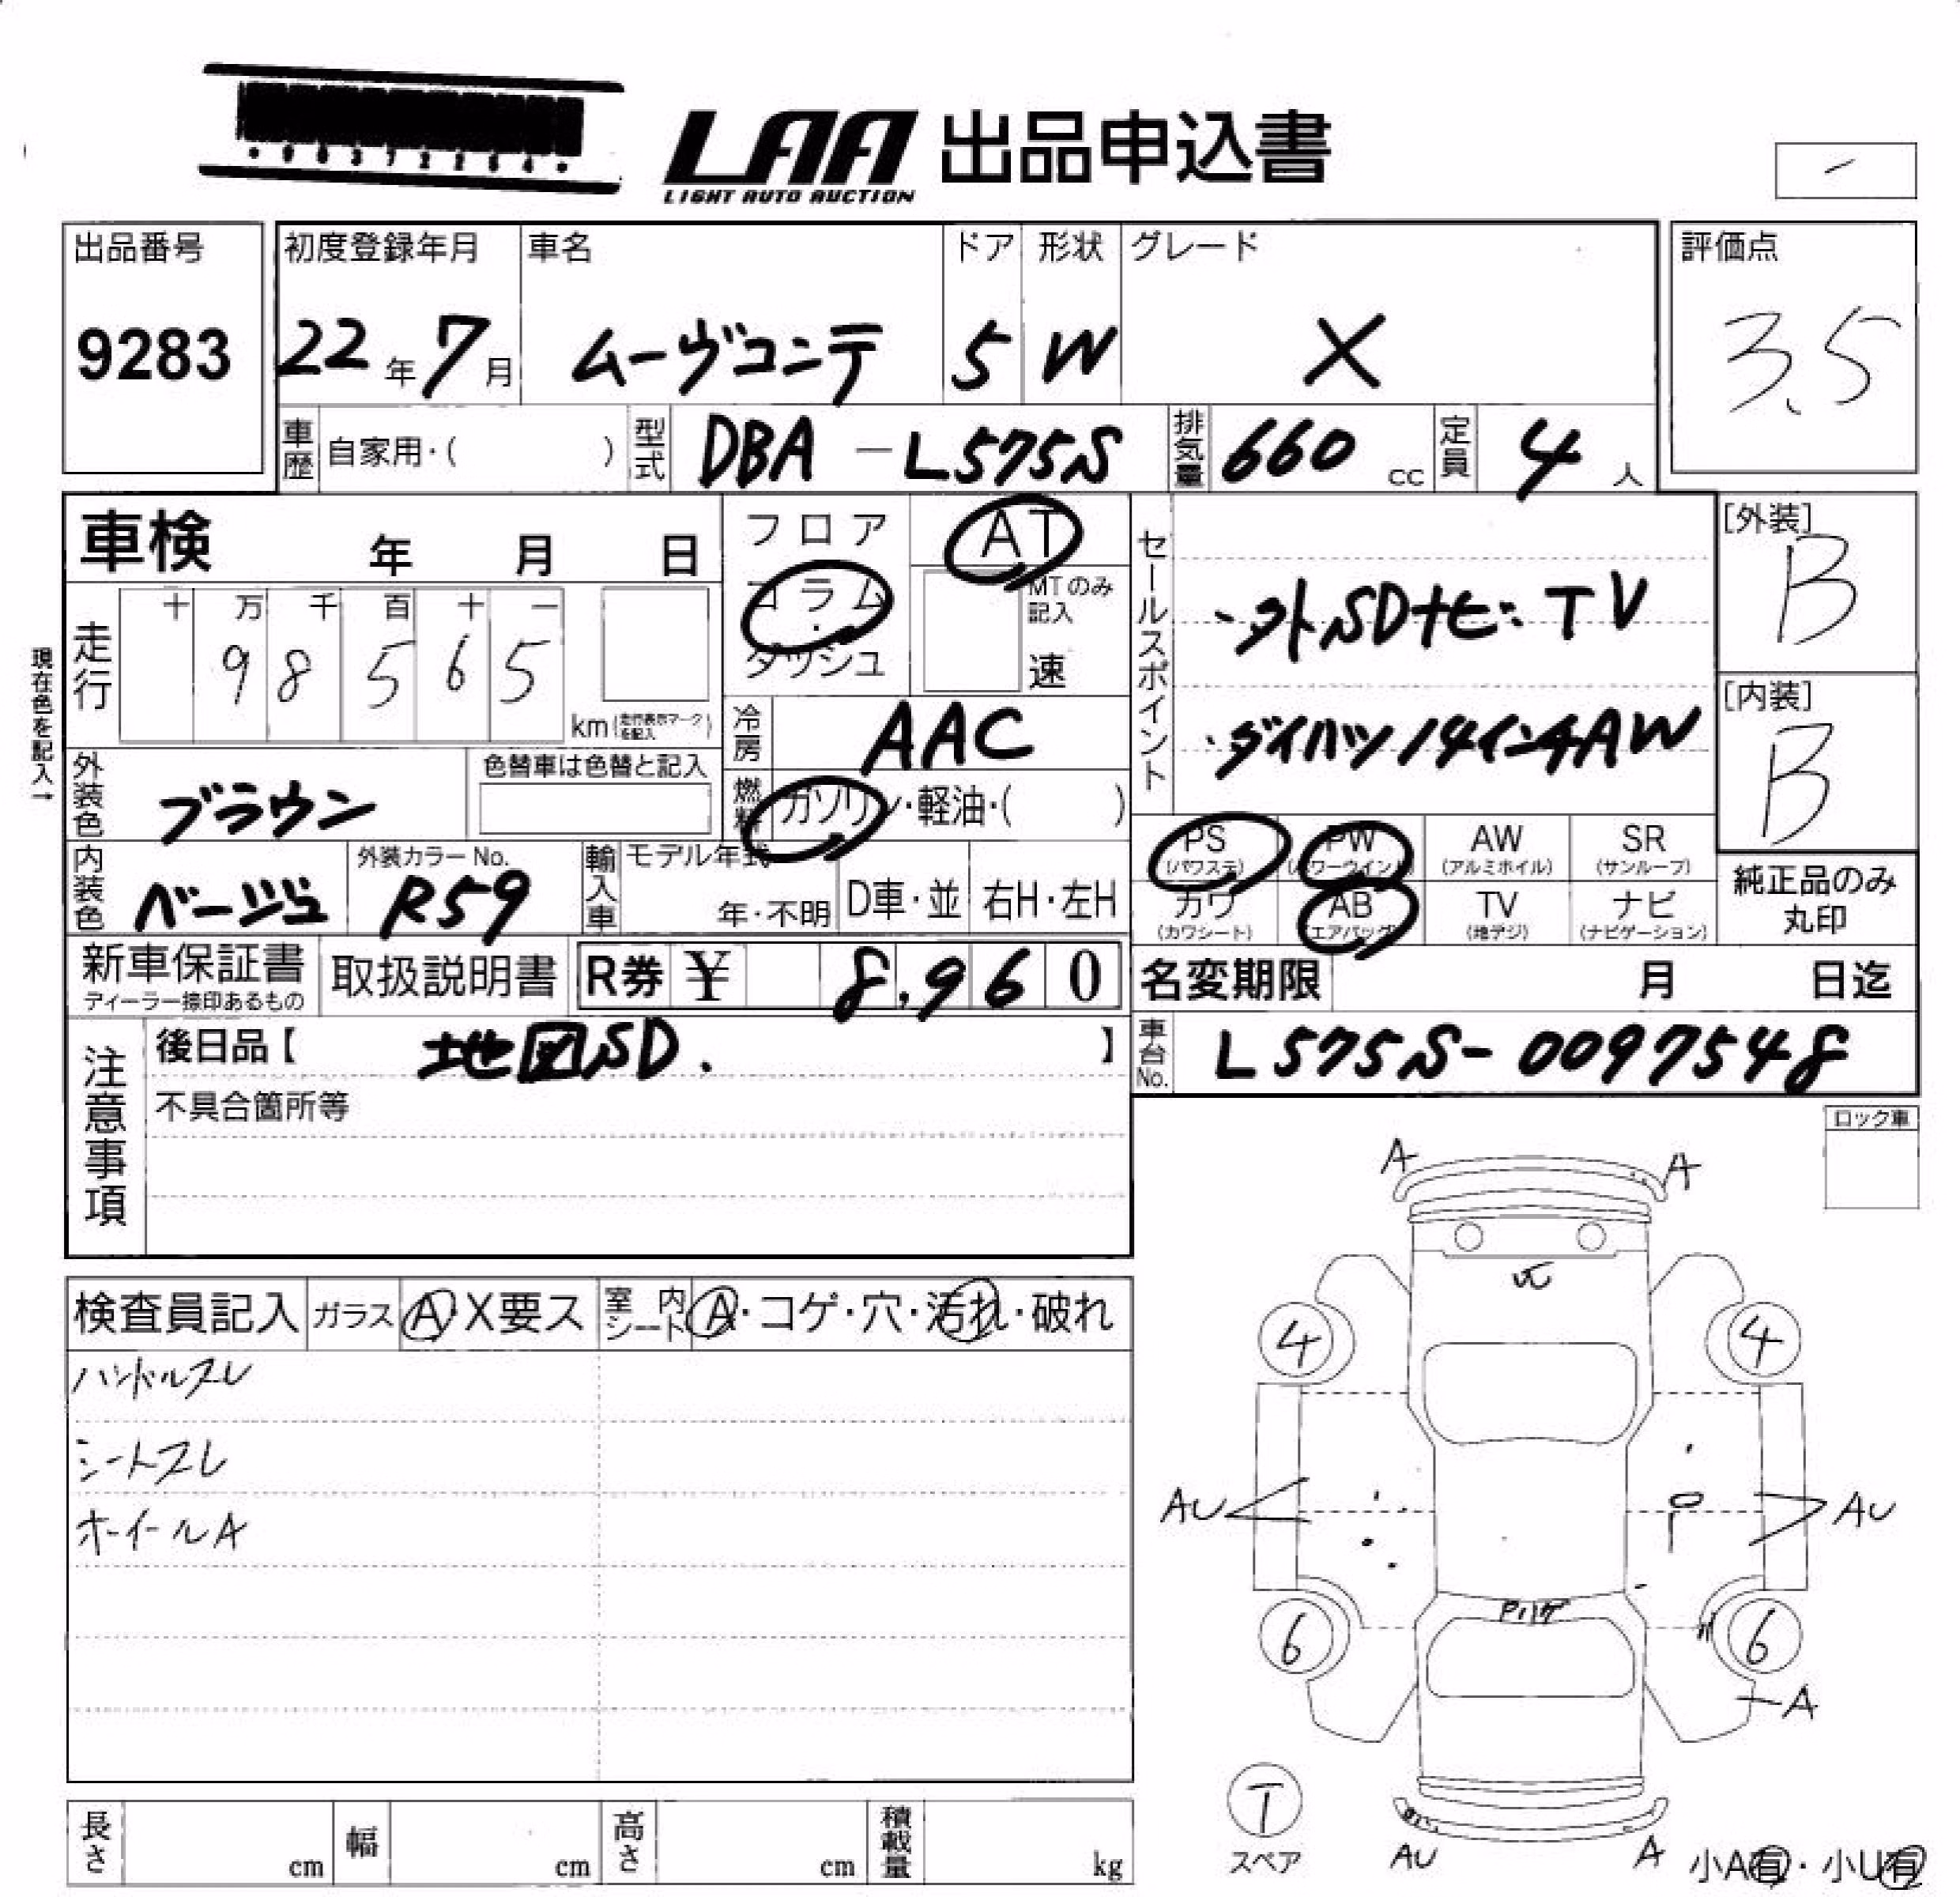 LAA 出品申込書
LIGHT AUTO AUCTION
出品番号
9283
初度登録年月
22年7月
車名
ムーヴコンテ
ドア
5
形状
W
グレード
X
評価点
3.5
車歴 自家用・( )
型式 DBA-L575S
排気量 660 cc
定員 4 人
車検 年 月 日
フロア
コラム
ダッシュ
AT
MTのみ記入
速
セールスポイント
・外SDナビ・TV
・ダイハツ14インチAW
[外装]
B
[内装]
B
現在色を記入→
走行
十 万 千 百 十 一
9 8 5 6 5
km (走行表示マークを記入)
冷房 AAC
外装色 ブラウン
色替車は色替と記入
燃料 ガソリン・軽油・( )
内装色 ベージュ
外装カラーNo.
R59
輸入車 モデル年式
年・不明
D車・並
右H・左H
PS (パワステ)
PW (パワーウインド)
AW (アルミホイル)
SR (サンルーフ)
カワ (カワシート)
AB (エアバッグ)
TV (地デジ)
ナビ (ナビゲーション)
純正品のみ
丸印
新車保証書
ディーラー捺印あるもの
取扱説明書
R券 ¥ 8,960
名変期限 月 日迄
注意事項
後日品【 地図SD. 】
不具合箇所等
車台No. L575S-0097548
ロック車
検査員記入
ガラス A・X要ス
室内シート A・コゲ・穴・汚れ・破れ
ハンドルスレ
シートスレ
ホイールA
A
A
4
4
AU
AU
Pハゲ
6
6
A
T
スペア
AU
A
小A有・小U有
長さ cm
幅 cm
高さ cm
積載量 kg